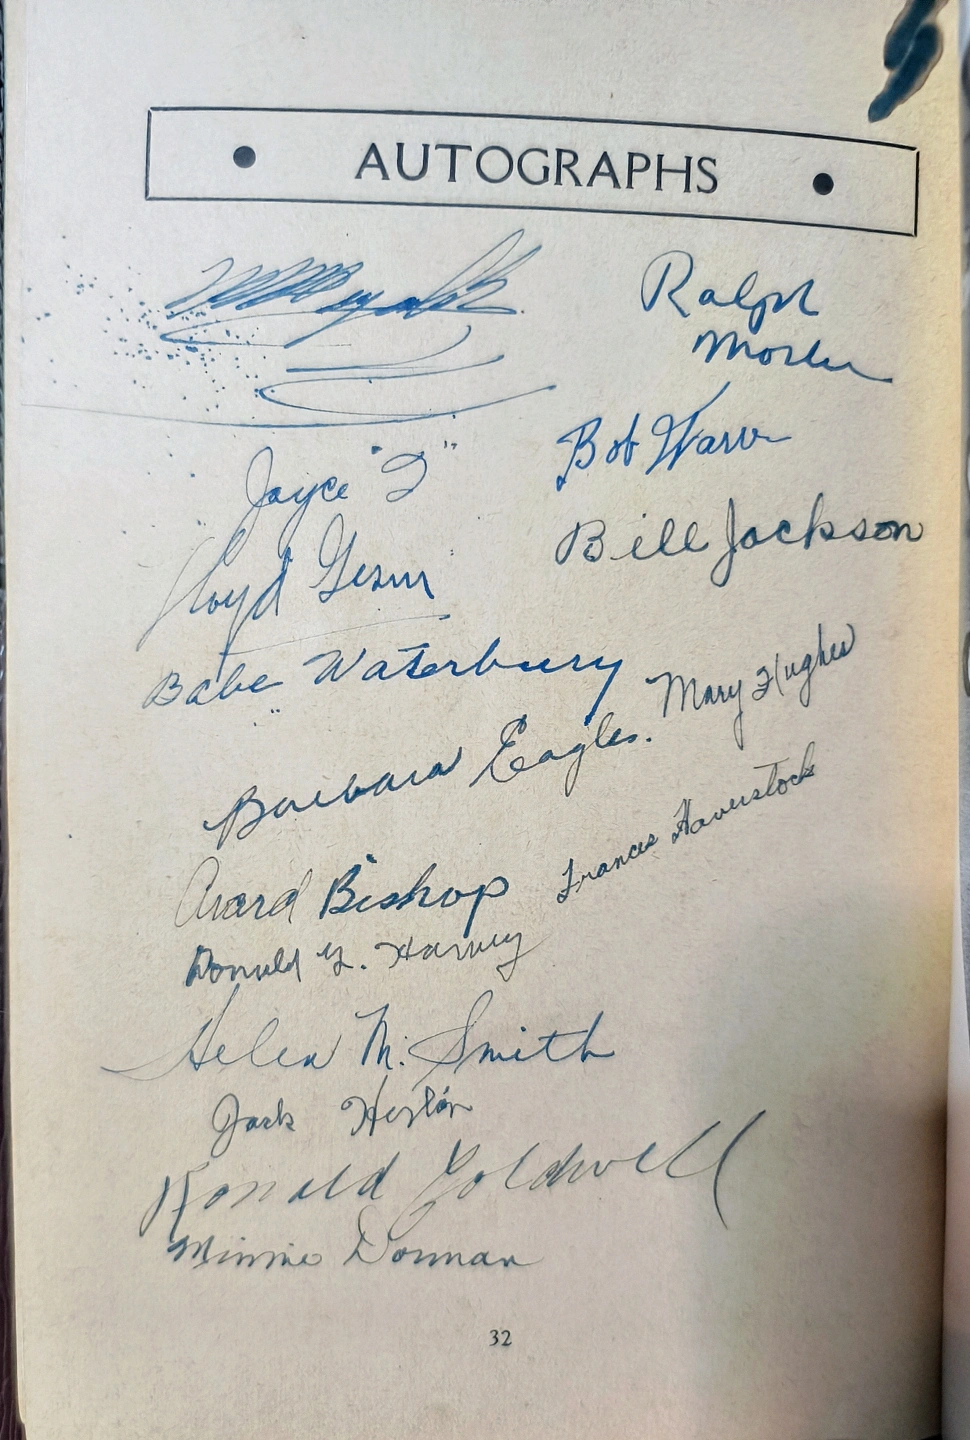 • AUTOGRAPHS •
Ralph
Joyce "J"
Bob
Bill Jackson
Floyd
Babe Waterbury
Mary Hughes
Barbara Eagles.
Frances Haverstock
Avard Bishop
Donald Y. Harvey
Helen M. Smith
Jack
Ronald Goldwell
Minnie Dorman
32